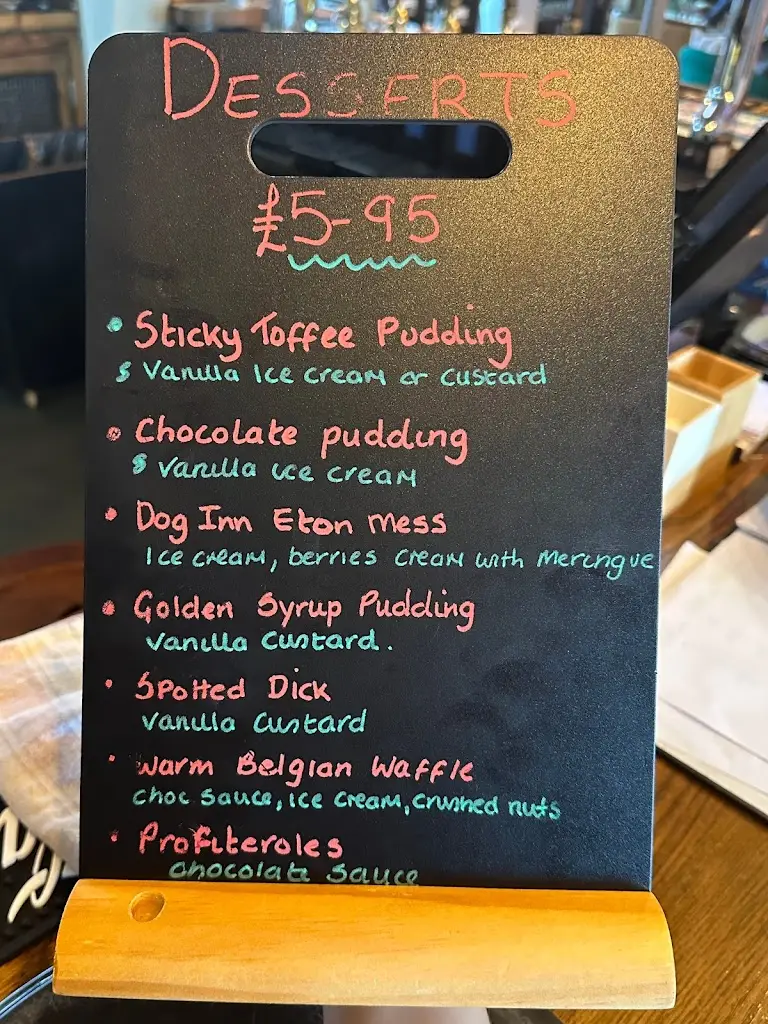 DESSERTS
£5-95
• Sticky Toffee Pudding
& Vanilla Ice cream or custard
• Chocolate pudding
& Vanilla ice cream
• Dog Inn Eton mess
Ice cream, berries cream with merengue
• Golden Syrup Pudding
Vanilla Custard.
• Spotted Dick
Vanilla Custard
• Warm Belgian Waffle
choc sauce, ice cream, crushed nuts
• Profiteroles
chocolate sauce